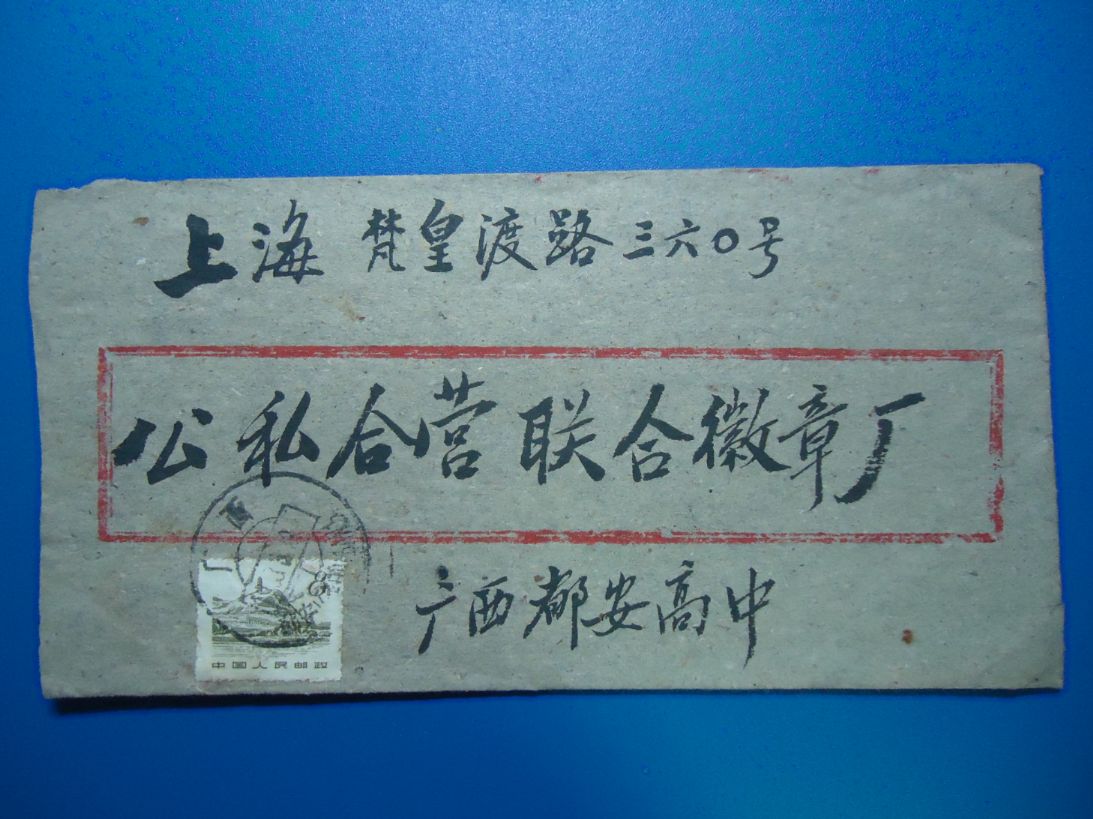 上海 梵皇渡路三六〇号
公私合营联合徽章厂
广西都安高中
中国人民邮政